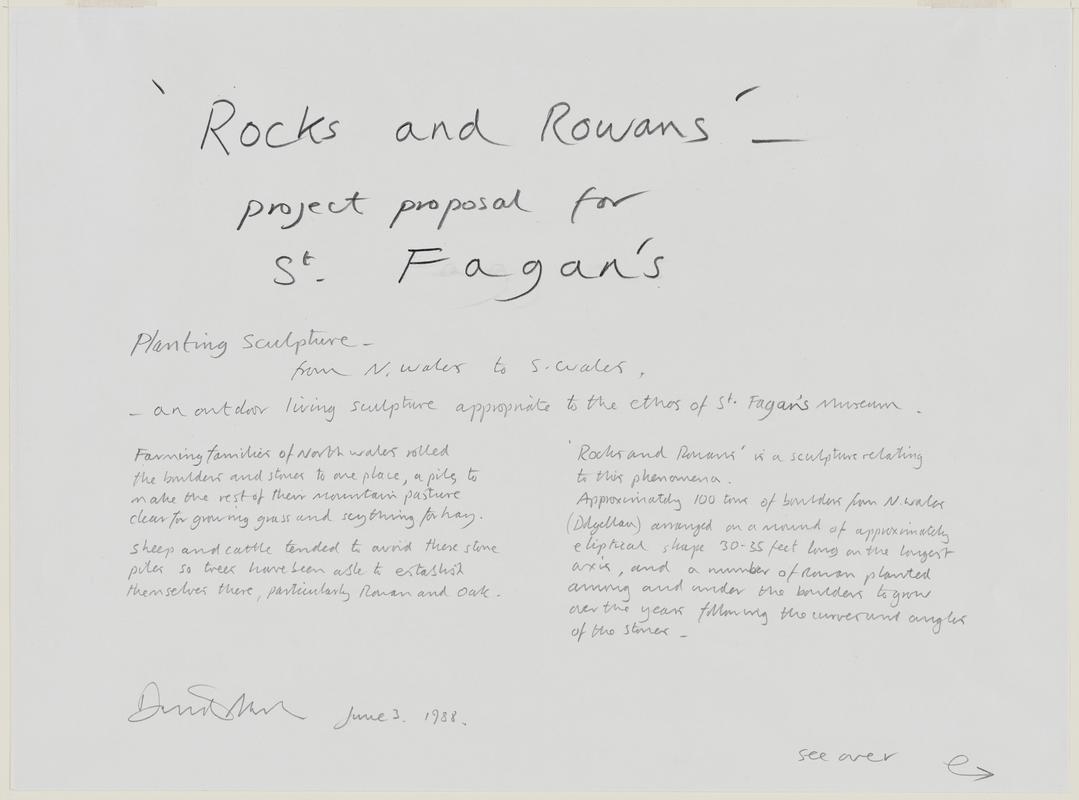 ‘Rocks and Rowans’ —
project proposal for
St. Fagan's
Planting Sculpture –
from N. Wales to S. Wales,
– an outdoor living sculpture appropriate to the ethos of St. Fagan's Museum.
Farming families of North Wales rolled
the boulders and stones to one place, a pile, to
make the rest of their mountain pasture
clear for growing grass and scything for hay.
Sheep and cattle tended to avoid these stone
piles so trees have been able to establish
themselves there, particularly Rowan and Oak.
‘Rocks and Rowans’ is a sculpture relating
to this phenomena.
Approximately 100 tons of boulders from N. Wales
(Dolgellau) arranged on a mound of approximately
eliptical shape 30-35 feet long on the longest
axis, and a number of Rowan planted
among and under the boulders to grow
over the years following the curves and angles
of the stones –
David Nash June 3. 1988.
see over